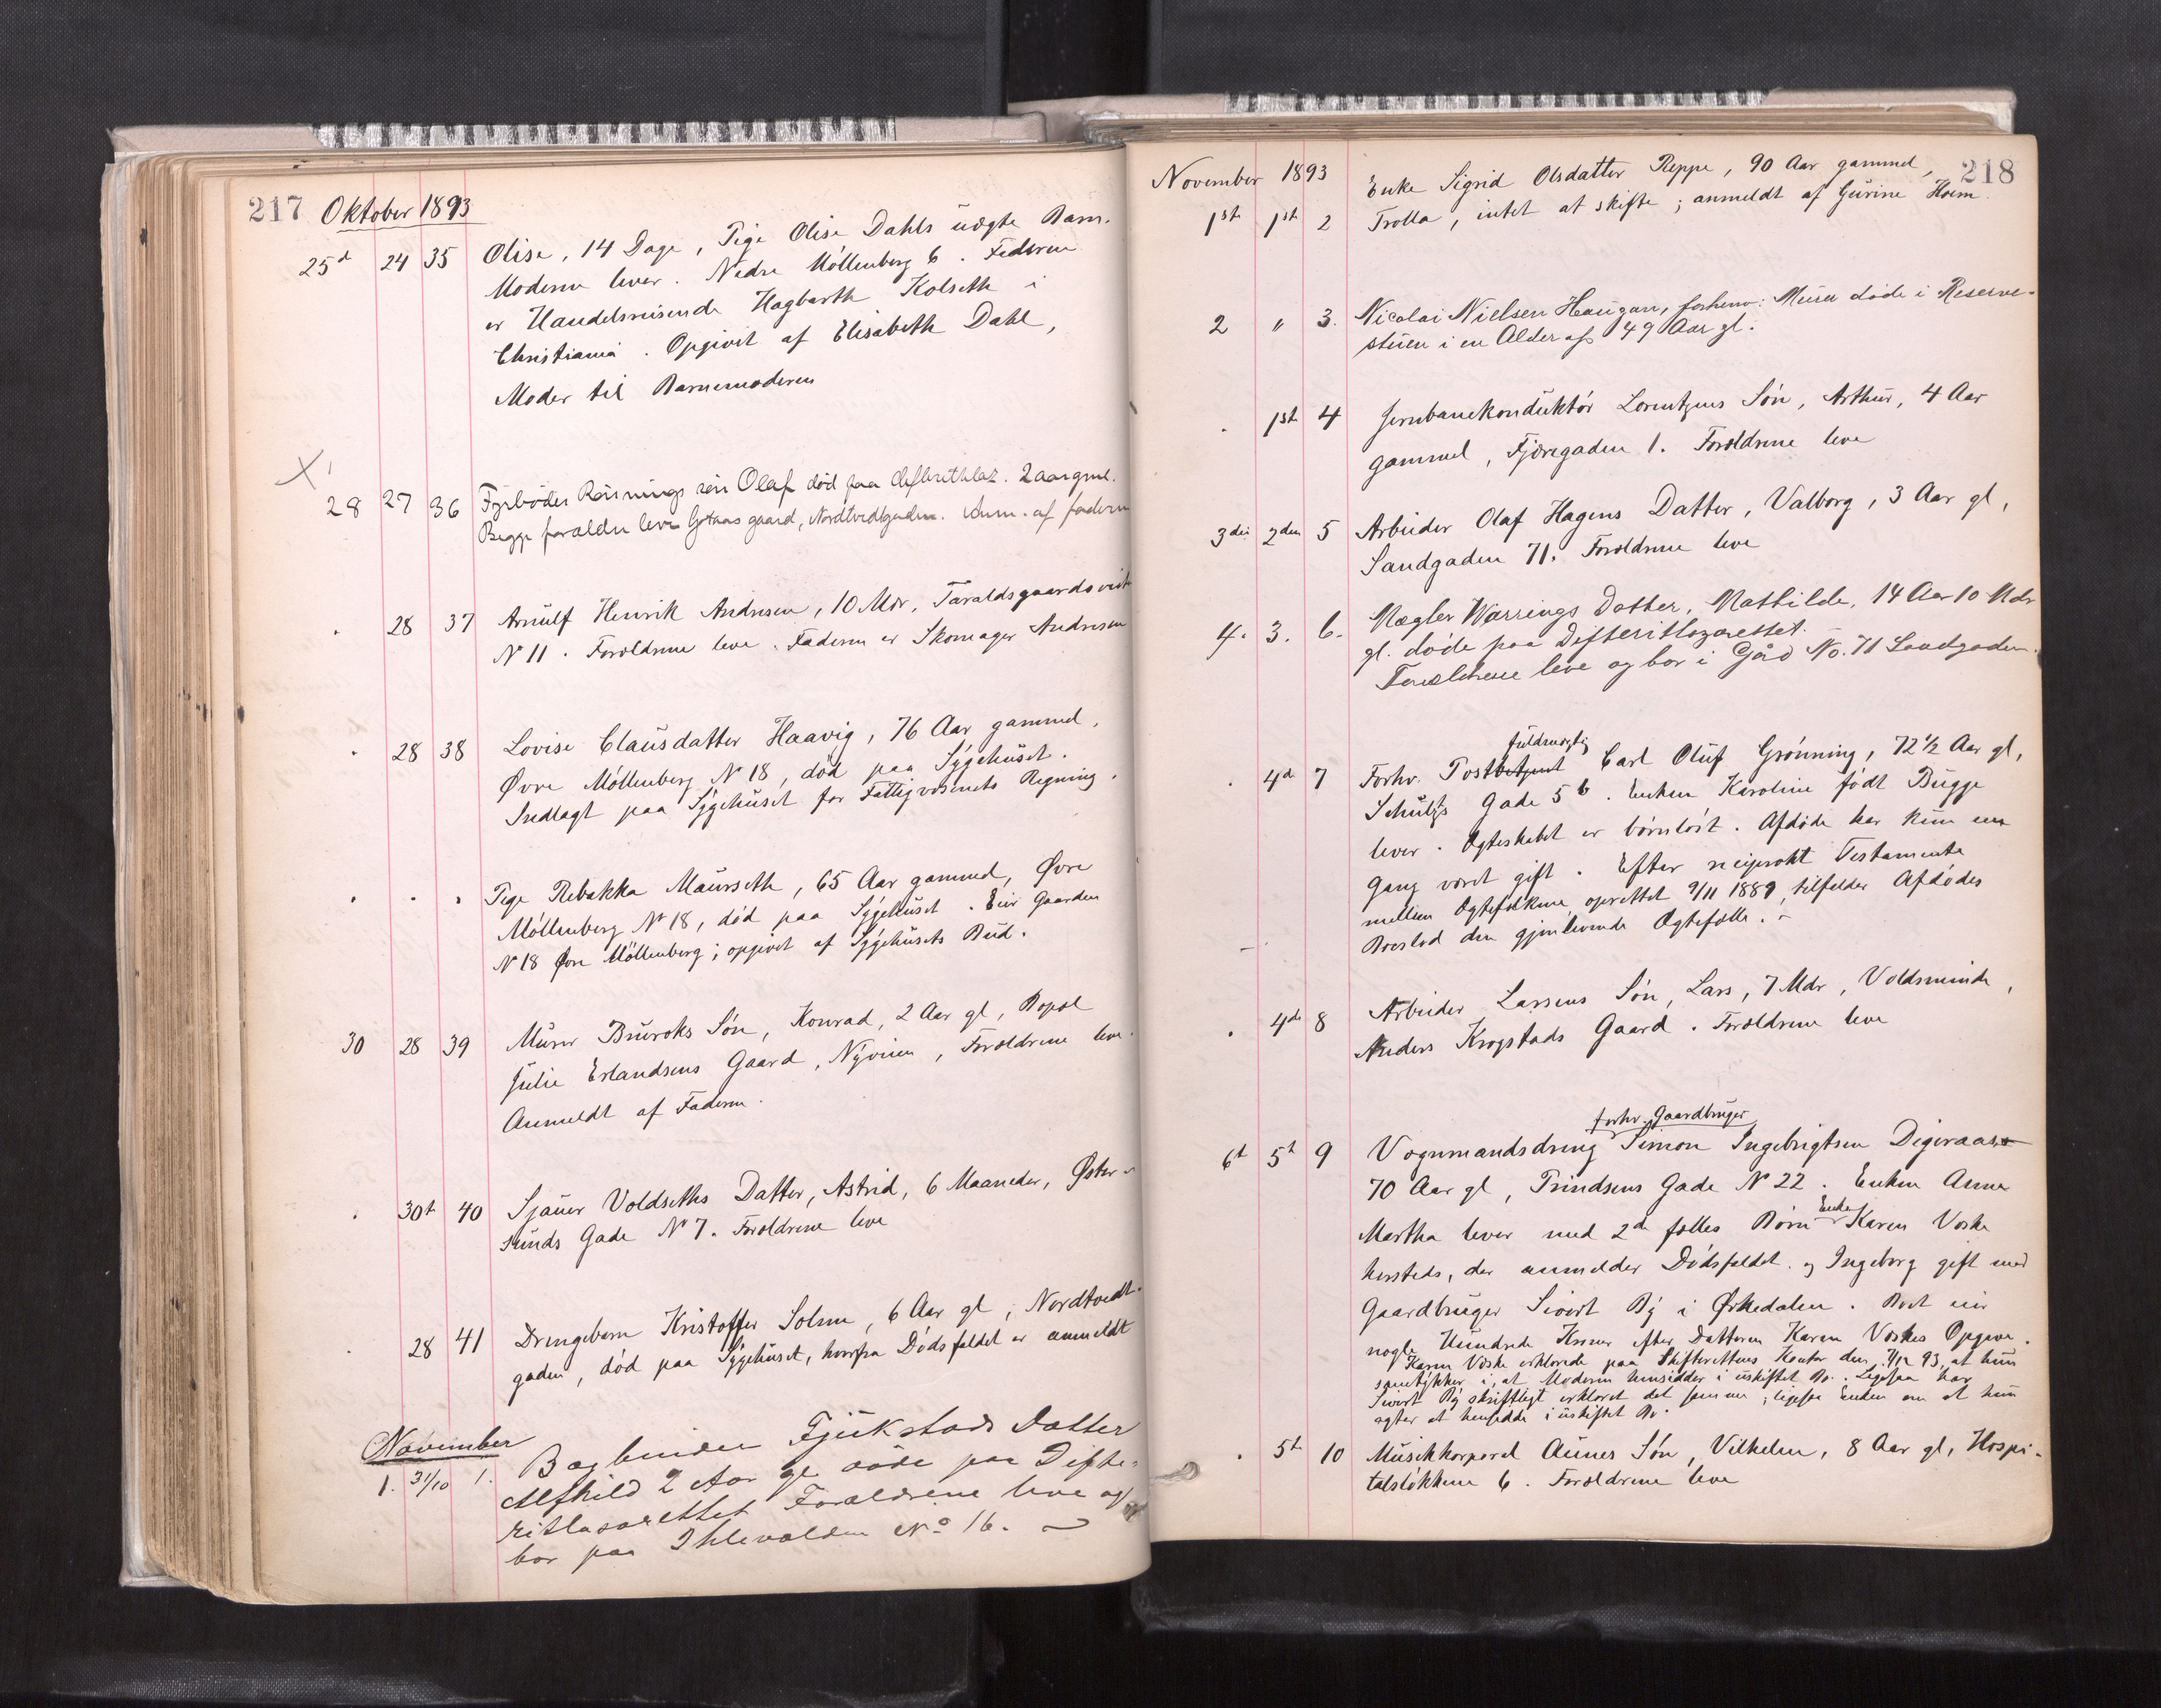 217 Oktober 1893
25d 24 35 Olise, 14 Dage, Pige Olise Dahls uægte Barn.
Moderen lever. Nedre Møllenberg 6. Faderen
er Handelsreisende Hagbarth Kolseth i
Christiania. Opgivet af Elisabeth Dahl,
Moder til Barnemoderen
28 27 36 Fyrbøder Rønnings søn Olaf død paa difterithlaz. 2 aar gml.
Begge forældre leve Gotaas gaard, Nordtvedtgaden. Anm. af faderen
. 28 37 Arnulf Henrik Andresen, 10 Mdr, Taraldsgaardsveit
N 11. Forældrene leve. Faderen er Skomager Andresen
. 28 38 Lovise Clausdatter Haavig, 76 Aar gammel,
Øvre Møllenberg N 18, død paa Sygehuset.
Indlagt paa Sygehuset for Fattigvæsenets Regning.
. . . Pige Rebekka Maurseth, 65 Aar gammel, Øvre
Møllenberg N 18, død paa Sygehuset. Eier Gaarden
N 18 Øvre Møllenberg; opgivet af Sygehusets Bud.
30 28 39 Murer Bruroks Søn, Konrad, 2 Aar gl, Bopæl
Julie Erlandsens Gaard, Nyveien, Forældrene leve.
Anmeldt af Faderen.
. 30t 40 Sjauer Voldseths Datter, Astrid, 6 Maaneder, Øster-
sunds Gade N 7. Forældrene leve
. 28 41 Drengebarn Kristoffer Solem, 6 Aar gl, Nordtvedt-
gaden, død paa Sygehuset, hvorfra Dødsfaldet er anmeldt
November
1. 31/10 1. Bagbinder Fjukstads Datter
Alfhild 2 Aar gl døde paa Difte-
ritlasarettet Forældrene leve og
bor paa Ihlevolden No 16.
November 1893 218
Enke Sigrid Olsdatter Reppe, 90 Aar gammel,
1st 1st 2 Trolla, intet at skifte; anmeldt af Gurine Hoem.
2 " 3. Nicolai Nielsen Haugan, forhenv: Murer døde i Reserve-
stuen i en Alder af 49 Aar gl.
. 1st 4 Jernbanekonduktør Lorentzens Søn, Arthur, 4 Aar
gammel, Fjæregaden 1. Forældrene leve
3die 2den 5 Arbeider Olaf Hagens Datter, Valborg, 3 Aar gl,
Sandgaden 71. Forældrene leve
4. 3. 6. Mægler Warrings Datter, Mathilde, 14 Aar 10 Mdr
gl. døde paa Difteritlazarettet.
Forældrene leve og bor i Gård No. 71 Sandgaden.
fuldmægtig
. 4d 7 Forhv. Postbetjent Carl Oluf Grønning, 72 1/2 Aar gl,
Schultz Gade 5 b. Enken Karoline født Bugge
lever. Ægteskabet er børnløst. Afdøde har kun en
Gang været gift. Efter reciprokt Testamente
mellem Ægtefolkene oprettet 9/11 1889, tilfalder Afdødes
Boeslod den gjenlevende Ægtefælle.
. 4de 8 Arbeider Larsens Søn, Lars, 7 Mdr, Voldsminde,
Anders Krogstads Gaard. Forældrene leve
forhv. Gaardbruger
6t 5t 9 Vognmandsdreng Simon Ingebrigtsen Digeraas
70 Aar gl, Trindsens Gade N 22. Enken Anne
Martha lever med 2d fælles Børn Enke Karen Voske
hersteds, der anmelder Dødsfaldet og Ingeborg gift med
Gaardbruger Sivert By i Ørkedalen. Boet eier
nogle Hundrede Kroner efter Datteren Karen Voskes Opgave.
Karen Voske erklærede paa Skifterettens Kontor den 7/12 93, at hun
samtykker i, at Moderen hensidder i uskiftet Bo. Ligesaa har
Sivert By skriftligt erklæret det samme; ligesaa Enken om at hun
agter at hensidde i uskiftet Bo.
. 5t 10 Musikkorporal Aunes Søn, Vilhelm, 8 Aar gl, Hospi-
talsløkkene 6. Forældrene leve